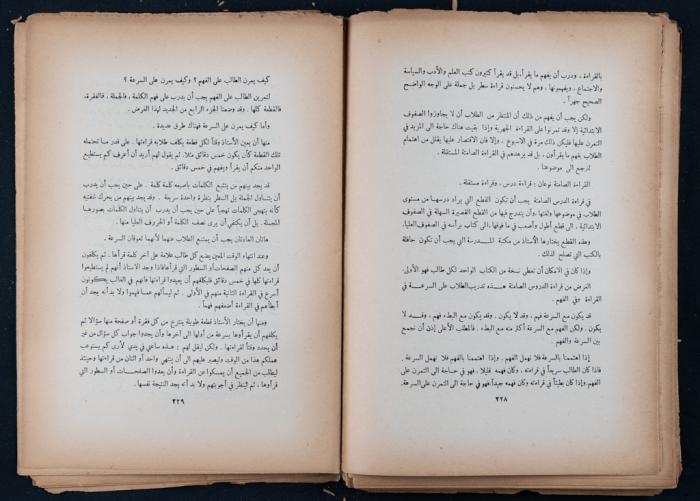 بالقراءة ، ودرب أن يفهم ما يقرأ، بل قد يقرأ كثيرون كتب العلم والأدب والسياسة
والاجتماع ، ويفهمونها ، وهم لا يحسنون قراءة سطر بل جملة على الوجه الواضح
الصحيح جهراً .
ولكن يجب أن يفهم من ذلك أن المنتظر من الطلاب أن لا يجاوزوا الصفوف
الابتدائية إلا وقد تمرنوا على القراءة الجهرية وإذا بقيت هناك حاجة الى المزيد في
التمرن عليها فليكن ذلك مرة في الاسبوع ، وإلا فان الاقتصار عليها يقلل من اهتمام
الطلاب بفهم ما يقرأون ، بل قد يزهدهم في القراءة الصامتة المستقلة .
لنرجع الى موضوعنا .
القراءة الصامتة نوعان : قراءة درس ، وقراءة مستقلة .
في قراءة الدرس الصامتة يجب أن تكون القطع التي يراد درسها من مستوى
الطلاب في موضوعها ولغتها ، وأن يتدرج فيها من القطع القصيرة السهلة في الصفوف
الابتدائية ، الى قطع أطول وأصعب في ما فوقها، الى كتاب برأسه في الصفوف العليا .
وهذه القطع يختارها الأستاذ من مكتبة المدرسة التي يجب أن تكون حافلة
بالكتب التي تصلح لذلك .
وإذا كان في الامكان أن تعطى نسخة من الكتاب الواحد لكل طالب فهو الأولى .
الغرض من قراءة الدروس الصامتة هذه تدريب الطلاب على السرعة في
القراءة وفي الفهم .
قد يكون مع السرعة فهم . وقد لا يكون . وقد يكون مع البطء فهم ، وقد لا
يكون . ولكن الفهم مع السرعة أكثر منه مع البطء . فالمطلب الأعلى إذن أن نجمع
بين السرعة والفهم .
إذا اهتممنا بالسرعة فلا نهمل الفهم . وإذا اهتممنا بالفهم فلا نهمل السرعة .
فاذا كان الطالب سريعاً في قراءته ، وكان فهمه قليلا ، فهو في حاجة الى التمرن على
الفهم وإذا كان بطيئاً في قراءته وكان فهمه جيداً، فهو في حاجة الى التمرن على السرعة.
٢٢٨
كيف يمرن الطالب على الفهم ؟ وكيف يمرن على السرعة ؟
لتمرين الطالب على الفهم يجب أن يدرب على فهم الكلمة ، فالجملة ، فالفقرة،
فالقطعة كلها . وقد وضعنا الجزء الرابع من الجديد لهذا الغرض .
وأما كيف يمرن على السرعة فهناك طرق عديدة .
منها أن يعين الأستاذ وقتاً لكل قطعة يكلف طلابه قراءتها . على قدر ما تحتمله
تلك القطعة كأن يكون خمس دقائق مثلا. ثم يقول لهم أريد أن أعرف كم يستطيع
الواحد منكم أن يقرأ ويفهم في خمس دقائق .
قد يجد بينهم من يتتبع الكلمات باصبعه كلمة كلمة . على حين يجب أن يدرب
أن يتناول الجملة بل السطر بنظرة واحدة سريعة . وقد يجد بينهم من يحرك شفتيه
كأنه يتهجى الكلمات تهجياً على حين يجب أن يدرب أن يتناول الكلمات بصورها
المجملة . بل أن يكتفي أن يرى نصف الكلمة أو الحروف العليا منها .
هاتان العادتان يجب أن يمتنع الطلاب عنهما لأنهما تعوقان السرعة .
وعند انتهاء الوقت المعين يضع كل طالب علامة على آخر كلمة قرأها . ثم يكلفون
أن يعد كل منهم الصفحات أو السطور التي قرأها فاذا وجد الاستاذ أنهم لم يستطيعوا
قراءتها كلها في خمس دقائق فليكلفهم أن يعيدوا قراءتها فانهم في الغالب يكونون
أسرع في القراءة الثانية منهم في الأولى . ثم ليسألهم عما فهموا ولا بد أنه يجد أن
أبطأهم في القراءة أضعفهم فهماً .
ومنها أن يختار الأستاذ قطعة طويلة ينتزع من كل فقرة أو صفحة منها سؤالا ثم
يكلفهم أن يقرأوها بسرعة من أولها الى آخرها وأن يجدوا جواب كل سؤال من غير
أن يحدد وقتاً لقراءتها . ولكن ليقل لهم : هذه ساعتي في يدي لأرى كم يستوعب
عملكم هذا من الوقت وليصبر عليهم الى أن ينتهي واحد أو اثنان من قراءتها وحينئذ
ليطلب من الجميع أن يمسكوا عن القراءة وأن يعدوا الصفحات أو السطور التي
قرأوها ، ثم لينظر في أجوبتهم ولا بد أنه يجد النتيجة نفسها .
٢٢٩